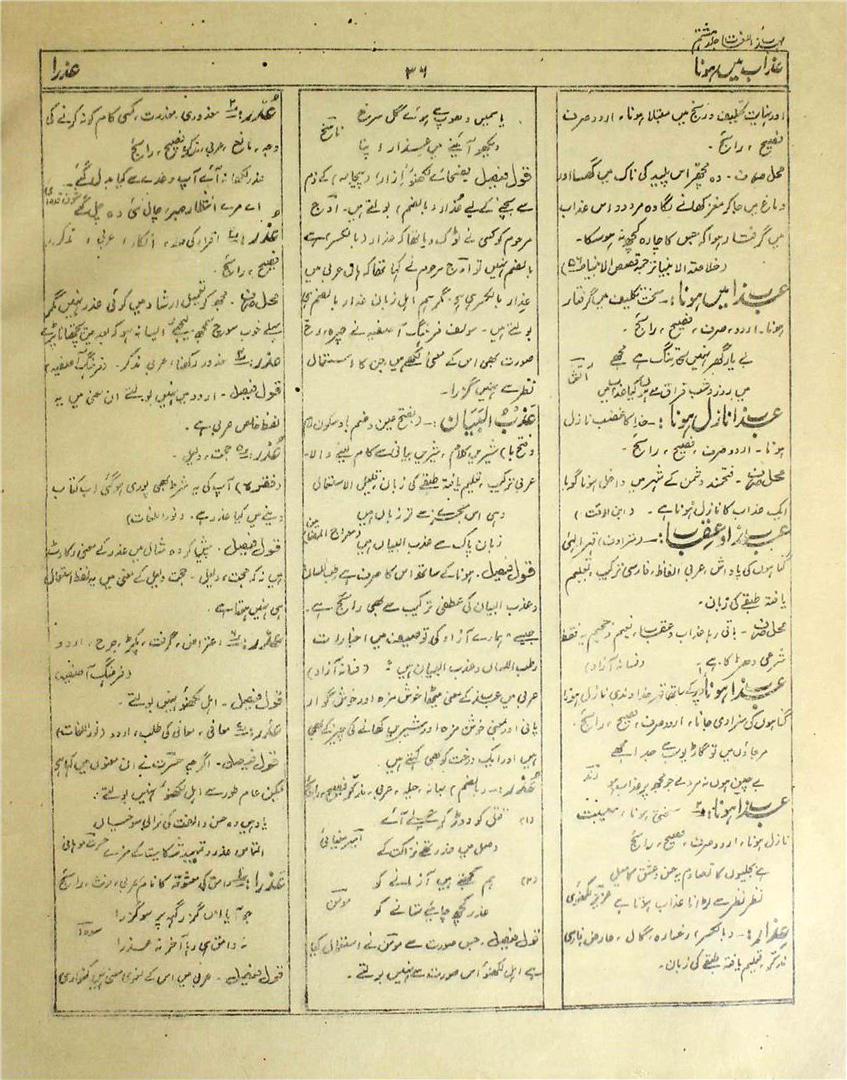 مہذب اللغات جلد ہشتم
عذاب میں ہونا
۳۶
عذرا
اور نہایت تکلیف و رنج میں مبتلا ہونا۔ اردو صرف
فصیح ، رائج۔
محل صرف ۔ وہ مچھر اس پلید کی ناک میں گھسا اور
دماغ میں جا کر مغز کھانے لگا وہ مردود اس عذاب
میں گرفتار ہوا کہ جس کا چارہ کچھ نہ ہو سکا۔
عذاب میں ہونا :۔ سخت تکلیف میں گرفتار
ہونا۔ اردو صرف ، فصیح ، رائج۔
عذاب نازل ہونا :۔ خدا کا غضب نازل
ہونا۔ اردو صرف ، فصیح ، رائج۔
محل صرف ۔ فتحمند دشمن کے شہر میں داخل ہونا گویا
ایک عذاب کا نازل ہونا ہے ۔ (ابن الوقت)
عذاب و عقاب :۔ (مترادف) قہر الٰہی
گناہوں کی پاداش ، عربی الفاظ ، فارسی ترکیب ، تعلیم
یافتہ طبقے کی زبان۔
محل صرف ۔ باقی رہا عذاب و عقاب ، نعیم و جحیم یہ فقط
شرعی دھڑکا ہے ۔ (فسانہ آزاد)
عذاب ہونا : کے ساتھ قہر خداوندی نازل ہونا
گناہوں کی سزا دی جانا ، اردو صرف ، فصیح ، رائج۔
بے چین ہوں نہ مردے جو مجھ پر عذاب ہو
عذاب ہونا : ۲ سختی ہونا ، مصیبت
نازل ہونا ، اردو صرف ، فصیح ، رائج
ہے بجلیوں کا تصادم یہ حسن و عشق کا میل
نظر نظر سے لڑانا عذاب ہوتا ہے عزیز لکھنوی
عذار :۔ (بالکسر) رخسارہ ، گال ، عارض فارسی
مذکر ، تعلیم یافتہ طبقے کی زبان۔
یاسمیں دھوپ سے ہوئے گل سرخ
دیکھو آئینے میں عذار اپنا ناسخ
قول فیصل ۔ فصحائے لکھنؤ ازار (پیجامہ) کے ذم
سے بچنے کے لیے عذار (بالضم) بولتے ہیں۔ اوج
مرحوم کو کسی نے ٹوک دیا تھا کہ عذار (بالکسر) ہے
بالضم نہیں تو اوج مرحوم نے کہا تھا کہ ہاں عربی میں
عذار بالکسر ہی ہے ، مگر ہم اہل زبان عذار بالضم ہی
بولتے ہیں۔ مولف فرہنگ آصفیہ نے چہرہ ، رخ
صورت بھی اس کے معنی لکھے ہیں جن کا استعمال
نظر سے نہیں گزرا۔
عذب البیان :۔ (بفتح عین و ضم با و سکون
و فتح با) شیریں کلام ، شیریں بیانی سے کام لینے والا۔
عربی ترکیب ، تعلیم یافتہ طبقے کی زبان ، قلیل الاستعمال
زبان پاک سے عذب البیاں ہیں
قول فیصل ۔ ہونا کے ساتھ اس کا صرف ہے رطب اللسان
و عذب البیان کی عطفی ترکیب سے بھی رائج ہے۔
جیسے : ہمارے آزاد کی توصیف میں اخبارات
رطب اللسان و عذب البیان ہیں : (فسانہ آزاد)
عربی میں عذب کے معنی میٹھا خوش مزہ اور خوش گوار
پانی اور بمعنی خوش مزہ اور شیریں کھانے کی چیز کے بھی
ہیں اور ایک درخت کو بھی کہتے ہیں۔
عذر :۔ (بالضم) بہانہ ، حیلہ ، عربی ، مذکر فصیح ، رائج
وصل میں عذر تھے نزاکت کے امیر مینائی
عذر کچھ چاہیے ستانے کو مومن
قول فیصل ۔ جس صورت سے مومن نے استعمال کیا
ہے اہل لکھنؤ اس صورت سے نہیں بولتے۔
عذر : ۲ معذوری ، معذرت ، کسی کام کو نہ کرنے کی
وجہ ، مانع ، عربی ، مذکر ، فصیح ، رائج
عذر لکھا نہ آئے آپ وعدے سے کیا بدل گئے
عذر : ۳ اقرار کی ضد ، انکار ، عربی ، مذکر ،
فصیح ، رائج۔
محل صرف ۔ مجھ کو تعمیل ارشاد میں کوئی عذر نہیں مگر
پہلے خوب سوچ سمجھ لیجیے ایسا نہ ہو کہ بعد میں پچھتانا پڑے
عذر : ۴ معذور رکھنا ، عربی مذکر ۔ (فرہنگ آصفیہ)
قول فیصل ۔ اردو میں نہیں بولتے ان معنی میں یہ
لفظ خاص عربی ہے ۔
عذر : ۵ حجت ، دلیل ۔
(فقرہ) آپ کی یہ شرط بھی پوری ہو گئی اب کتاب
دینے میں کیا عذر ہے ۔ (نور اللغات)
قول فیصل ۔ پیش کردہ مثال میں عذر کے معنی رکاوٹ
ہیں نہ کہ حجت ، دلیل ۔ حجت دلیل کے معنی میں یہ لفظ استعمال
ہی نہیں ہوتا ہے۔
عذر : ۶ اعتراض ، گرفت ، پکڑ ، جرح ، اردو
(فرہنگ آصفیہ)
قول فیصل ۔ اہل لکھنؤ نہیں بولتے ۔
عذر : ۷ معافی ، معافی کی طلب ، اردو (نور اللغات)
قول فیصل ۔ اگرچہ حسرت نے ان معنوں میں کہا ہے
لیکن عام طور سے اہل لکھنؤ نہیں بولتے ۔
یاد ہیں وہ حسن و الفت کی نرالی شوخیاں
التماس عذر و تمہید شکایت کے مزے حسرت موہانی
عذرا : وامق کی معشوقہ کا نام ، عربی ، مونث ، رائج
جو آیا اس گزرگہ پر سو گزرا
نہ وامق ہی رہا آخر نہ عذرا سودا
قول فیصل ۔ عربی میں اس کے لغوی معنی ہیں کنواری